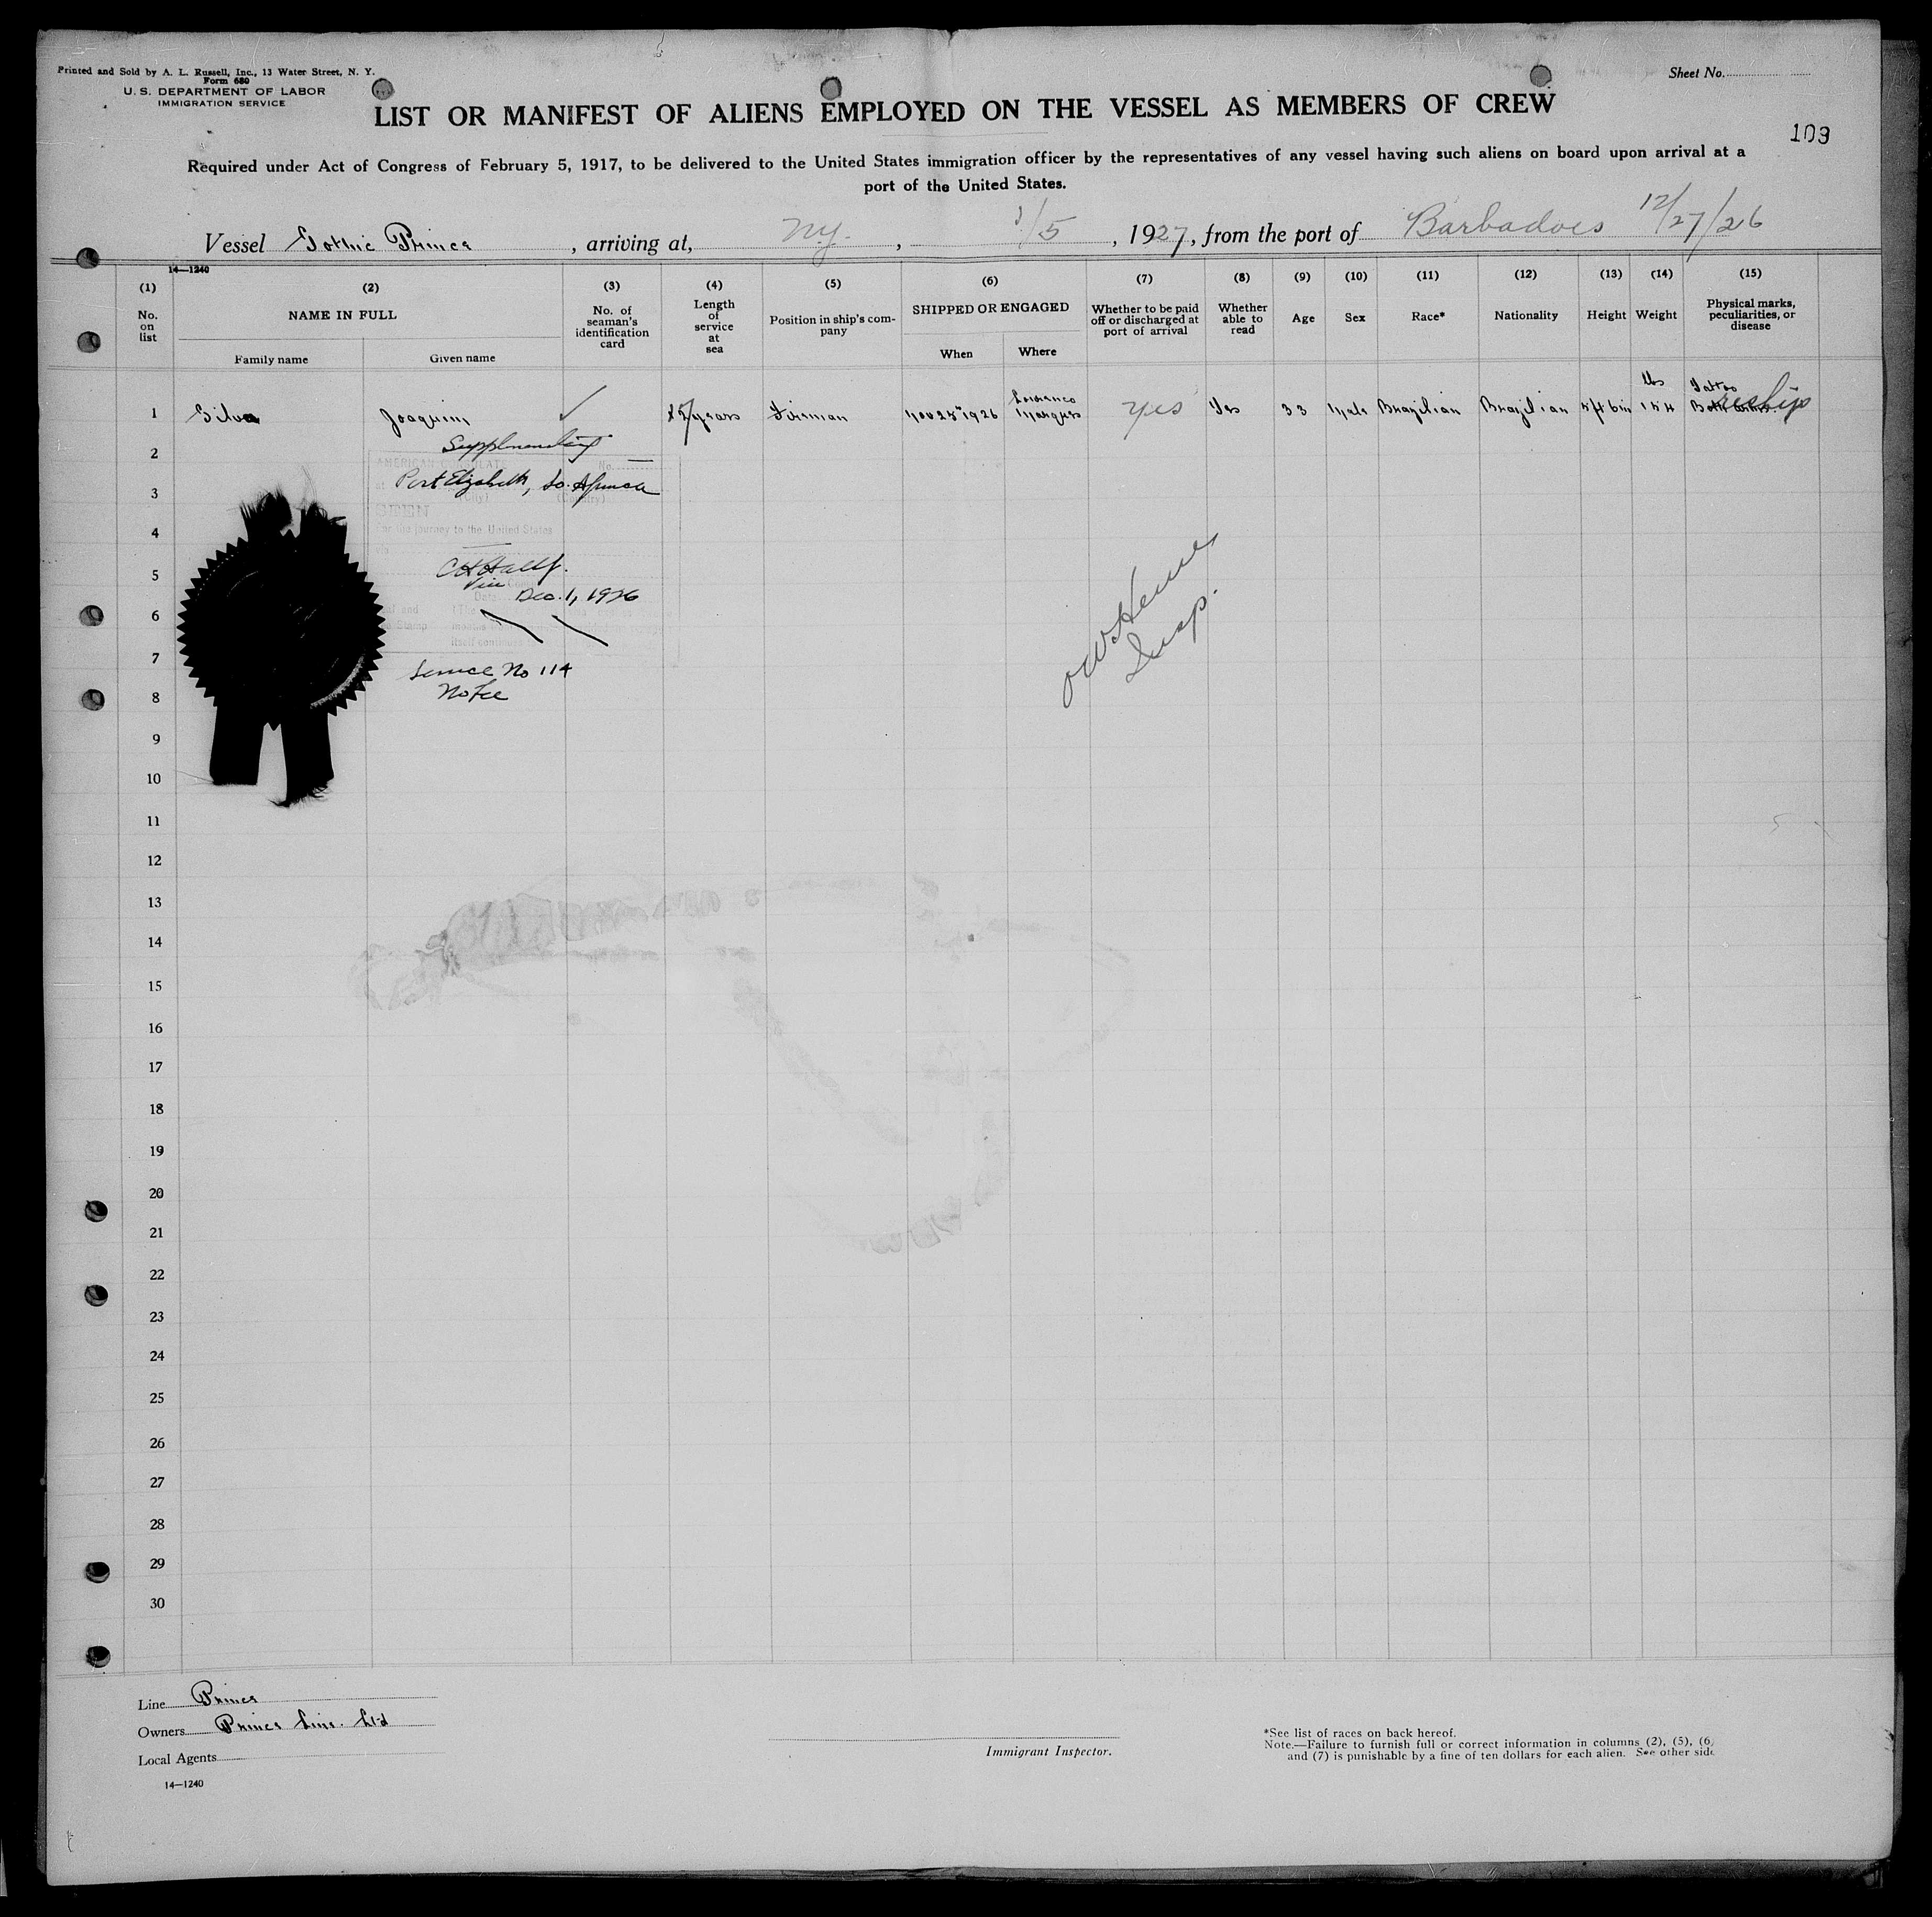 Printed and Sold by A. L. Russell, Inc., 13 Water Street, N. Y.
Form 680
U. S. DEPARTMENT OF LABOR
IMMIGRATION SERVICE
Sheet No.
LIST OR MANIFEST OF ALIENS EMPLOYED ON THE VESSEL AS MEMBERS OF CREW
103
Required under Act of Congress of February 5, 1917, to be delivered to the United States immigration officer by the representatives of any vessel having such aliens on board upon arrival at a
port of the United States.
Vessel Gothic Prince, arriving at, N.Y., 1/5, 1927, from the port of Barbadoes 12/27/26
14—1240
(1) (2) (3) (4) (5) (6) (7) (8) (9) (10) (11) (12) (13) (14) (15)
No. on list
NAME IN FULL
Family name
Given name
No. of seaman's identification card
Length of service at sea
Position in ship's company
SHIPPED OR ENGAGED
When
Where
Whether to be paid off or discharged at port of arrival
Whether able to read
Age
Sex
Race*
Nationality
Height
Weight
Physical marks, peculiarities, or disease
1 Silva Joaquim years Fireman Nov 25 1926 Lourenco Marques yes Yes 33 Male Brazilian Brazilian 5 ft 6 in lbs 154 Tattoo Both reship
2
Supplementary
3
Port Elizabeth, So. Africa
SEEN
For the journey to the United States
4
5
Dec. 1, 1926
6
7
Service No 114
8
No Fee
Insp.
9
10
11
12
13
14
15
16
17
18
19
20
21
22
23
24
25
26
27
28
29
30
Line Prince
Owners Prince Line. Ltd
Local Agents
14—1240
Immigrant Inspector.
*See list of races on back hereof.
Note.—Failure to furnish full or correct information in columns (2), (5), (6)
and (7) is punishable by a fine of ten dollars for each alien. See other side